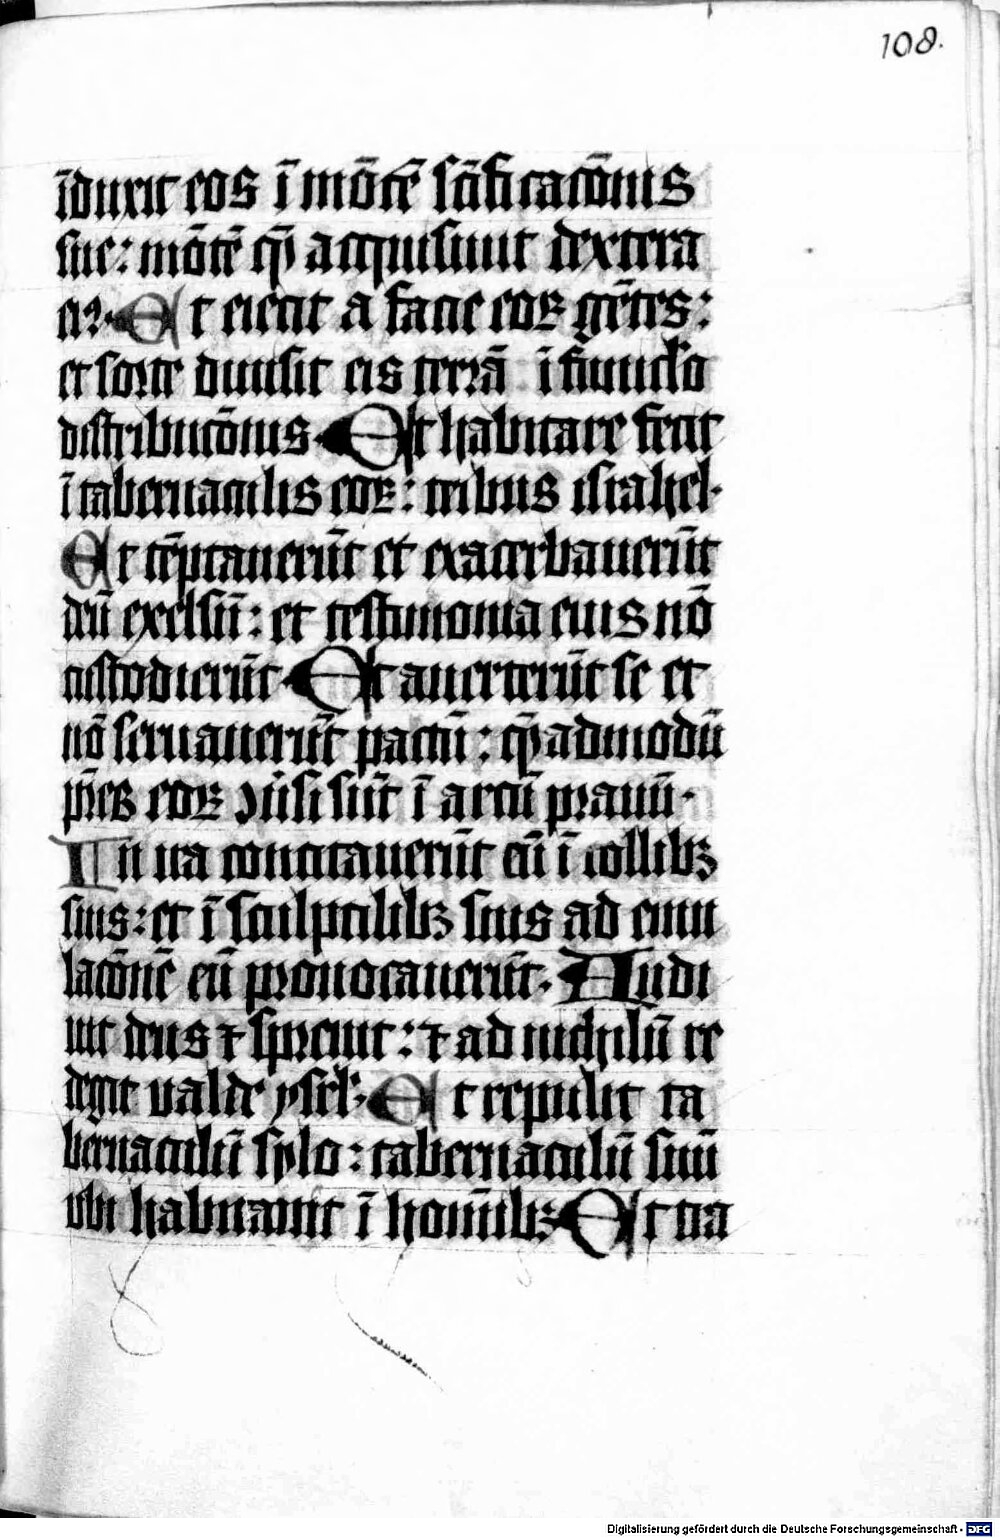 108.
īduxit eos ī mōtē sc̄ificacōnis
sue: mōtē quē acquisiuit dextera
eiꝰ. Et eiecit a facie eoꝝ gētes:
et sorte diuisit eis terrā ī funiclo
distribucōnis. Et habitare fecit
ī tabernaculis eoꝝ: tribus israhel.
Et tēptauerūt et exacerbauerūt
deū excelsū: et testimonia eius nō
custodierūt. Et auerterūt se et
nō seruauerūt pactū: quēadmodū
pr̄es eoꝝ ꝯuersi sūt ī arcū prauū.
In ira concitauerūt eū ī collibꝫ
suis: et ī sculptilibꝫ suis ad emu
lacōnē eū prouocauerūt. Audi
uit deus ⁊ spreuit: ⁊ ad nichilū re
degit valde ysrl̄. Et repulit ta
bernaculū sylo: tabernaculū suū
vbi habitauit ī hominibꝫ. Et tra
Digitalisierung gefördert durch die Deutsche Forschungsgemeinschaft - DFG